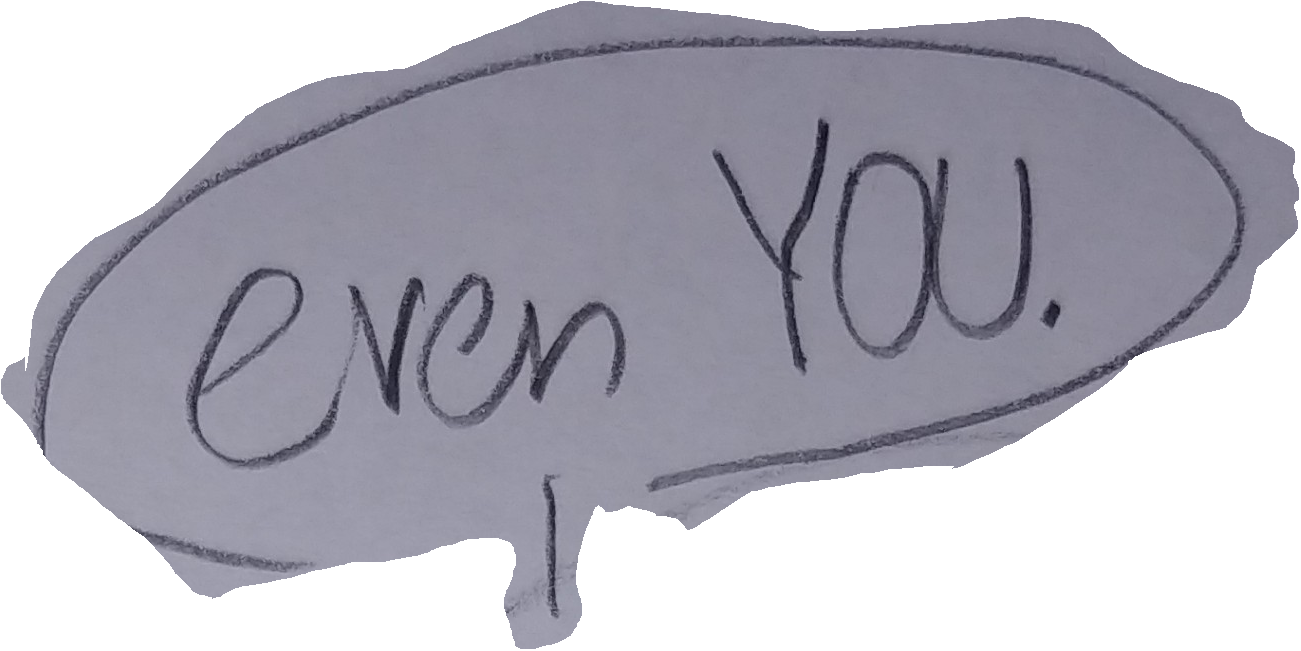 even YOU.